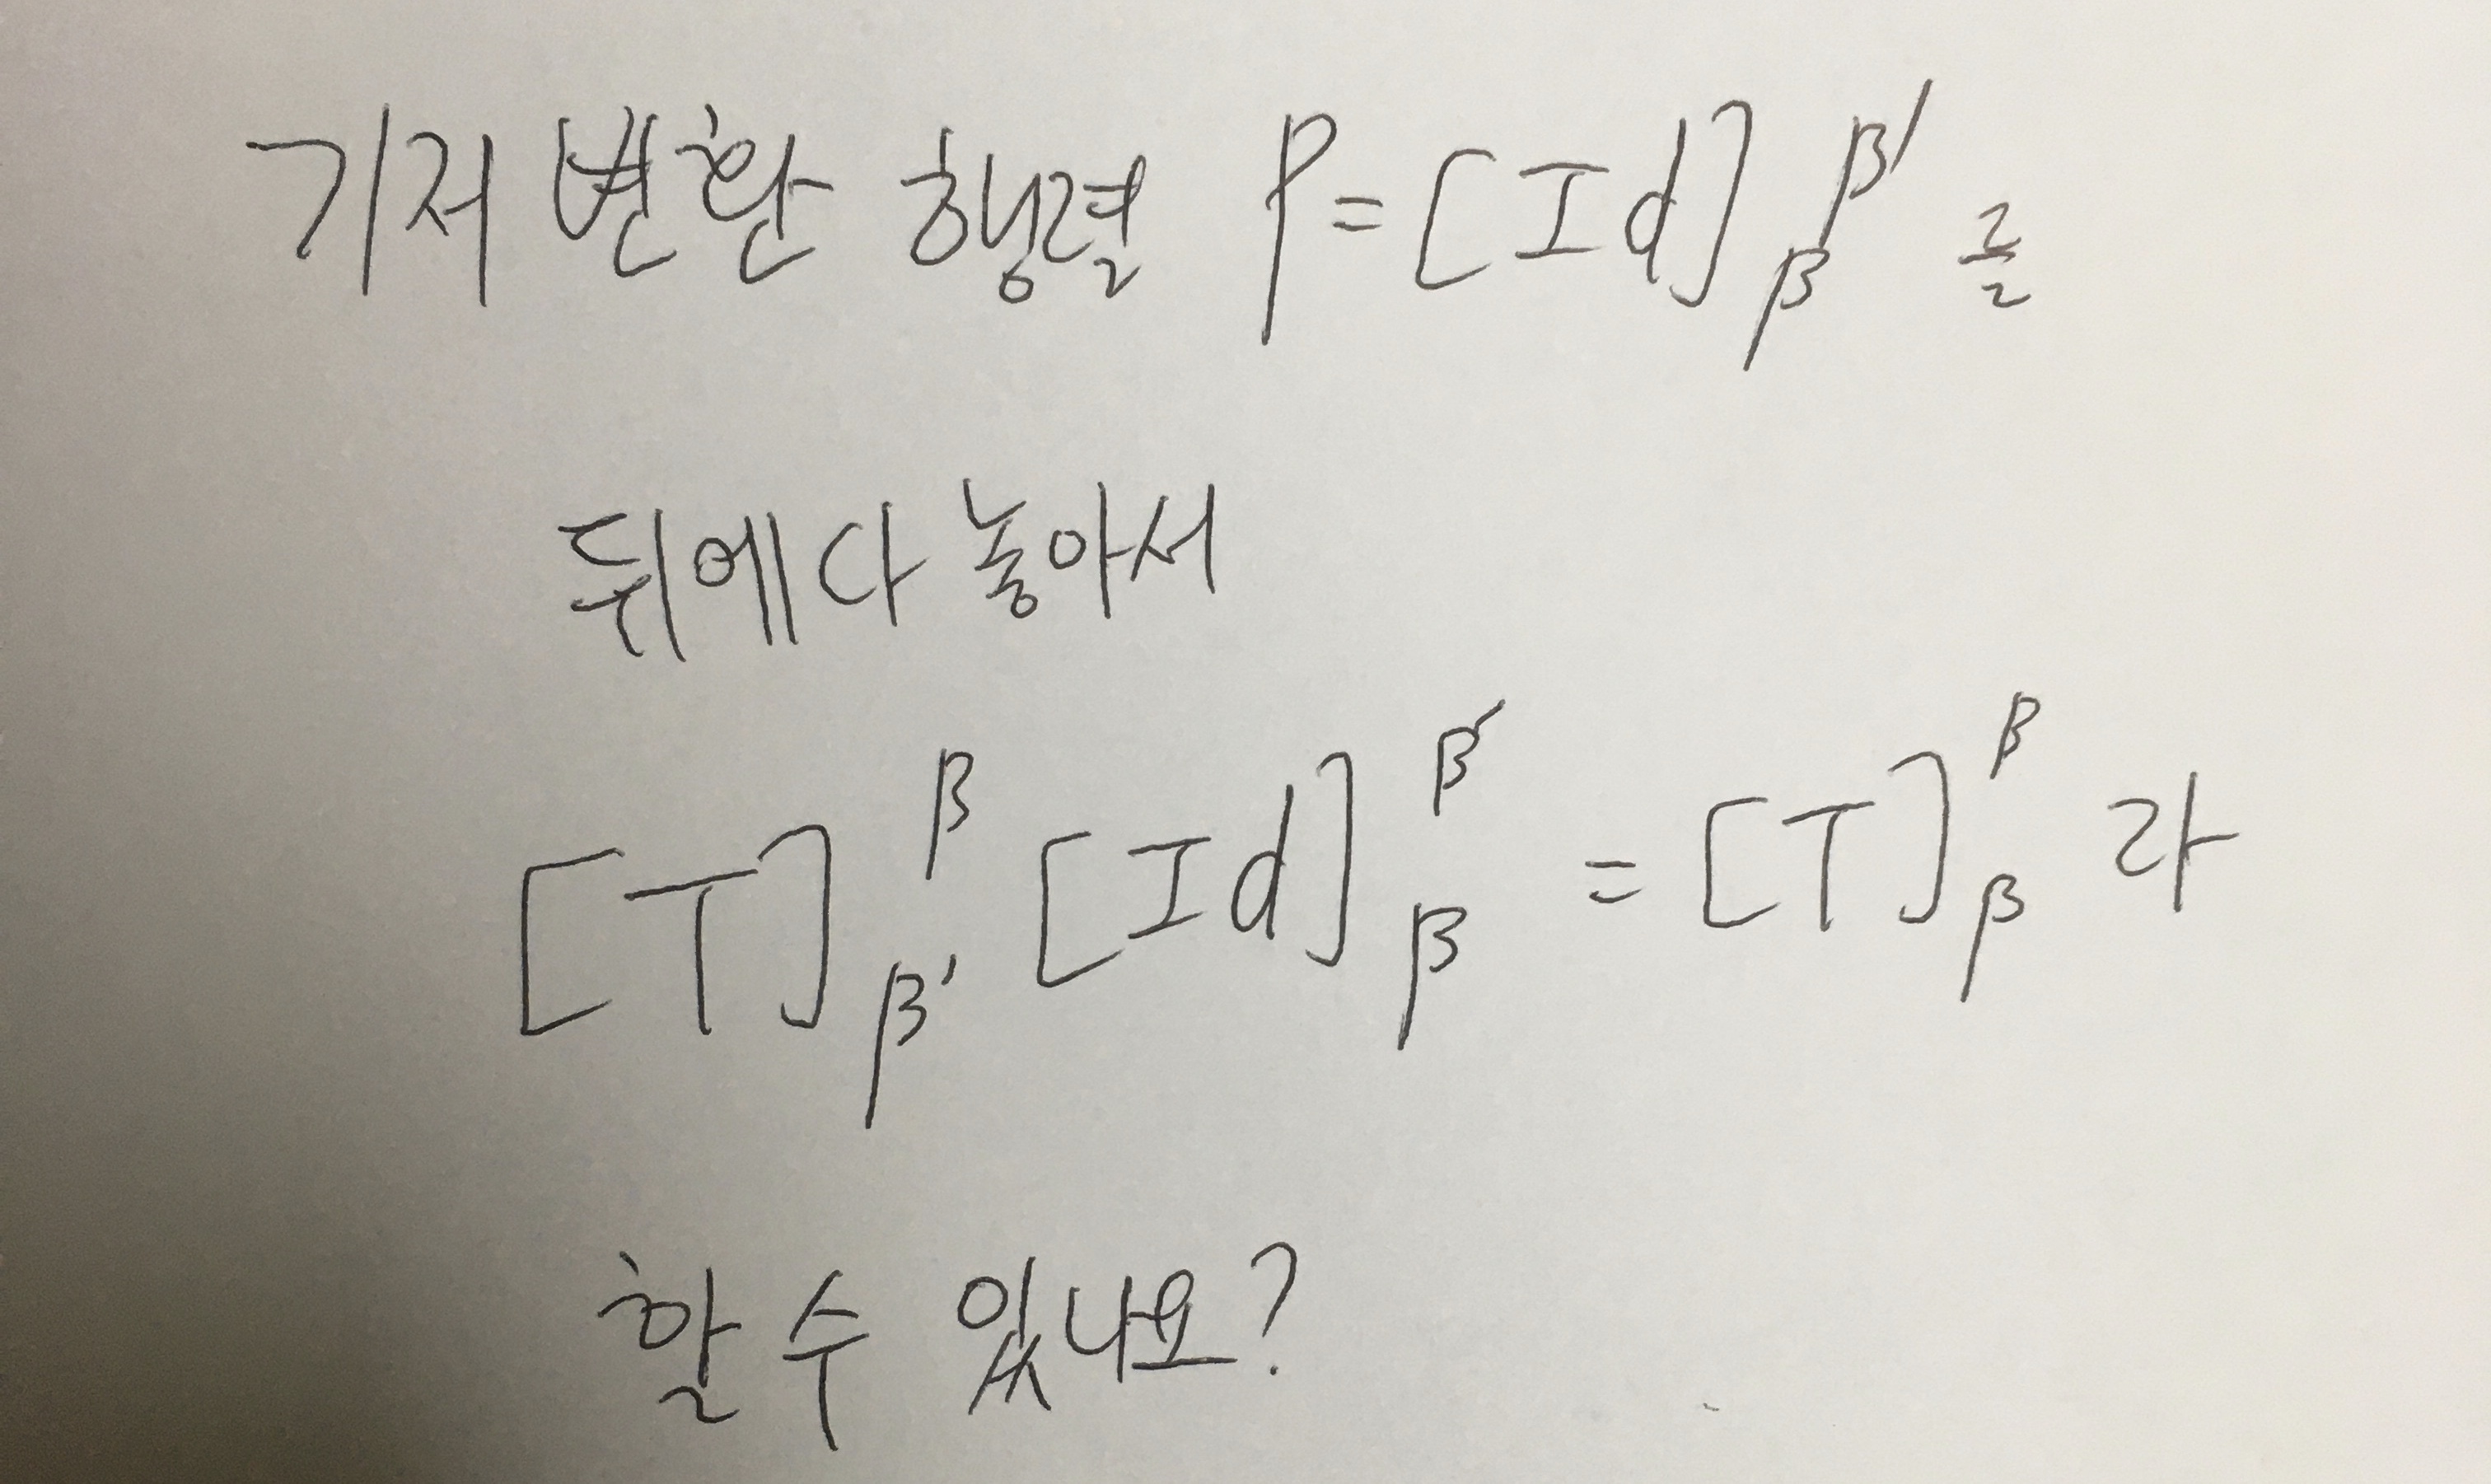 기저 변환 행렬 P = [Id]_β^β' 를
뒤에다 놓아서
[T]_β'^β [Id]_β^β' = [T]_β^β 라
할 수 있나요?